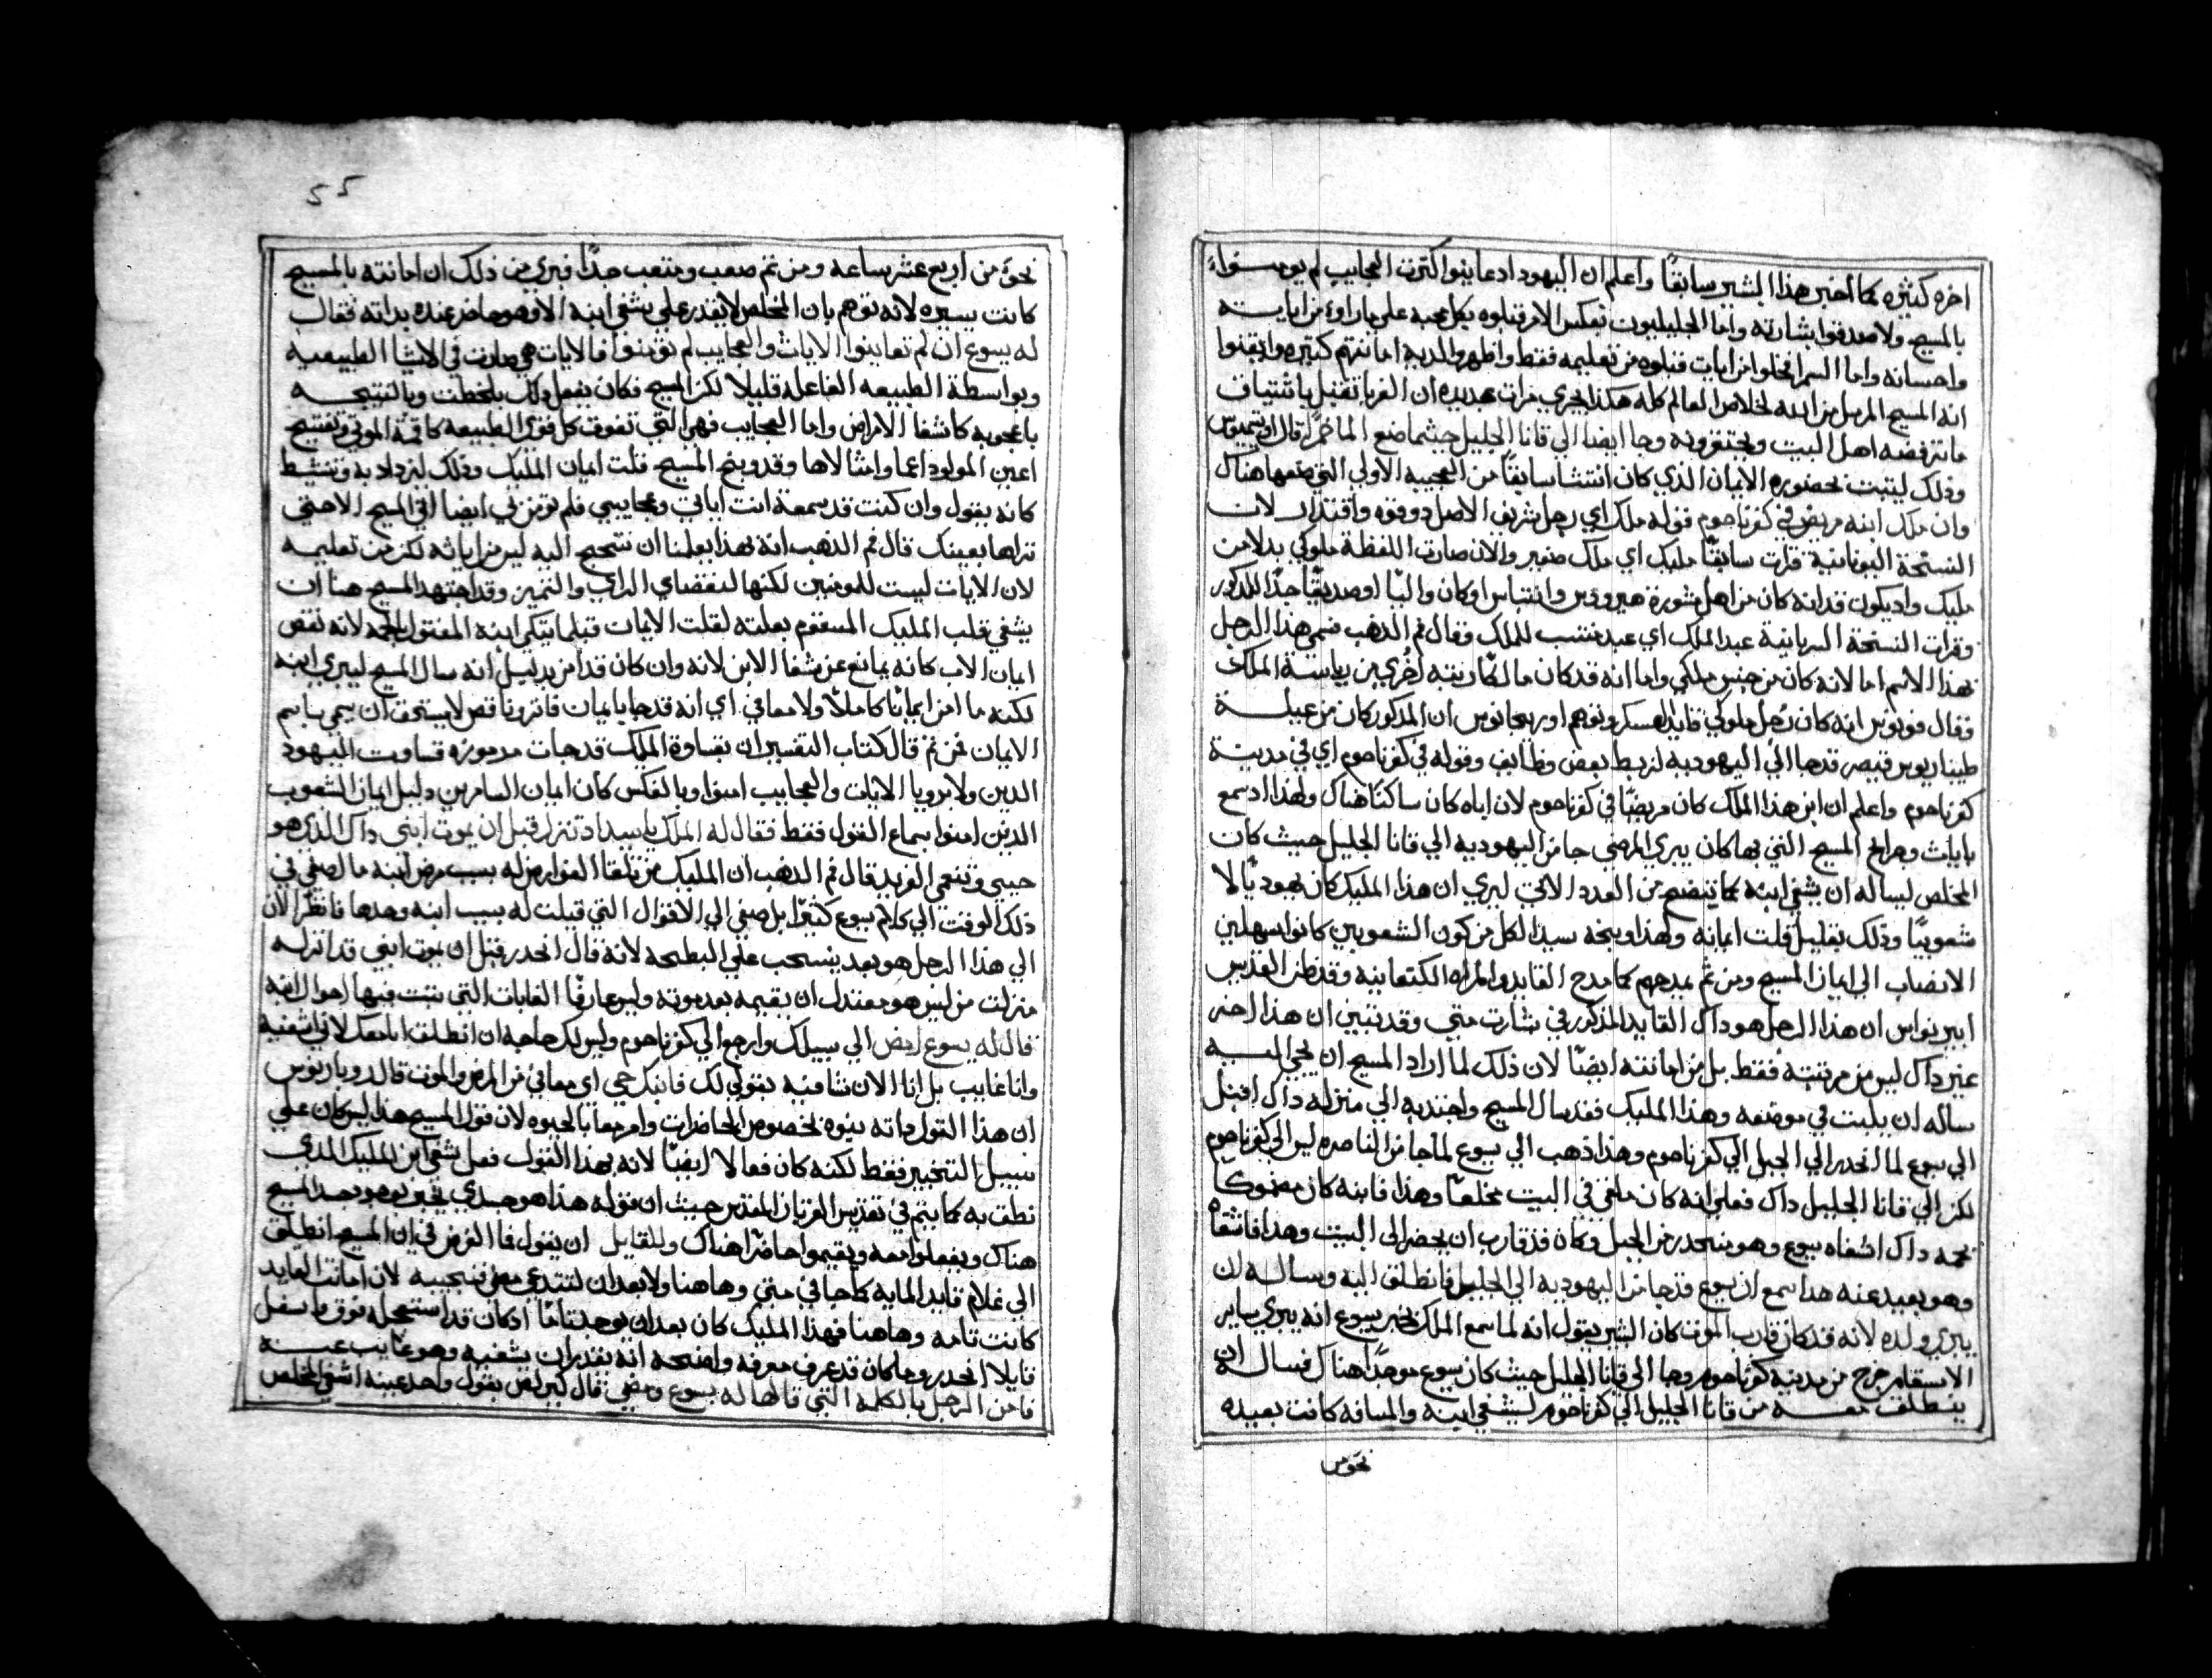 اخره كثيره كما اخبر هذا البشير سابقًا واعلم ان اليهود اذ عاينوا اكثرت العجايب لم يومنوا
بالمسيح ولا صدقوا بشارته واما الجليليون بعكس الامر قبلوه بكل محبه على ما راوه من اياته
واحسانه واما السمرا فخلوا من ايات قبلوه من تعليمه فقط واظهروا لديه امانتهم كثيره وايقنوا
انه المسيح المرسل من الله لخلاص العالم كله هكذا يجري مرات عديده ان الغربا تقبل باشتياق
ما ترفضه اهل البيت ويحتقرونه وجا ايضا الي قانا الجليل حيثما صنع الما خمرًا قال
وذلك ليثبت بحضوره الايمان الذي كان انتشا سابقًا من العجيبه الاولي التي صنعها هناك
وان ملك ابنه مريض في كفرناحوم قوله ملك اي رجل شريف الاصل ذو قوه واقتدار لان
النسخة اليونانية قرات سابقًا مليك اي ملك صغير والان صارت اللفظة ملوكي بدلا من
مليك واذ يكون قد انه كان من اهل مشورة هيرودس وانتيباس او كان واليًا او صديقًا جدًا للمذكور
وقرات النسخة السريانية عبد الملك اي عبد منتسب للملك وقال فم الذهب فسمي هذا الرجل
بهذا الاسم اما لانه كان من جنس ملكي واما انه قد كان مالكًا رتبه اخري من رياسة الملك
وقال انه كان رجل ملوكي قايد العسكر وتوهم اوريجانوس ان المذكور كان من عيلة
طيباريوس قيصر قد جا الي اليهوديه لزبط بعض وظايف وقوله في كفرناحوم اي في مدينة
كفرناحوم واعلم ان ابن هذا الملك كان مريضًا في كفرناحوم لان اباه كان ساكنًا هناك ولهذا اذ سمع
بايات وجرايح المسيح التي بها كان يبري المرضي جا من اليهوديه الي قانا الجليل حيث كان
المخلص ليساله ان يشفي ابنه كما يتضح من العدد الاتي ليري ان هذا المليك كان يهوديًا لا
شعوبيًا وذلك بقليل قلت ايمانه ولهذا وبخه سيد الكل من كون الشعوبيين كانوا سهلين
الانصباب الي ايمان المسيح ومن ثم يمدحهم كما مدح القايد والمراه الكنعانيه وقد ظن القديس
ايرينواس ان هذا الرجل هو ذاك القايد المذكور في بشارت متي وقد تبين ان هذا اخر
غير ذاك ليس من مرتبته فقط بل من امانته ايضًا لان ذلك لما اراد المسيح ان يجي اليه
ساله ان يلبث في موضعه وهذا المليك فقد سال المسيح واجتذبه الي منزله ذاك اقبل
الي يسوع لما انحدر الي الجبل الي كفرناحوم وهذا ذهب الي يسوع لما جا من الناصره ليس الي كفرناحوم
لكن الي قانا الجليل ذاك فعلي انه كان ملقي في البيت مخلعًا وهذا فابنه كان منهوكا
بحمه ذاك اشفاه يسوع وهو منحدر من الجبل وكان قد قارب ان يحضر الي البيت وهذا فاشفاه
وهو بعيد عنه هذا سمع ان يسوع قد جا من اليهوديه الي الجليل فانطلق اليه وساله ان
يبري ولده لانه قد كان قارب الموت كان البشير يقول انه لما سمع الملك بخبر يسوع انه يبري ساير
الاسقام خرج من مدينة كفرناحوم وجا الي قانا الجليل حيث كان يسوع موجدًا هناك فساله ان
ينطلق معه من قانا الجليل الي كفرناحوم ليشفي ابنه والمسافه كانت بعيده
نحو من
55
نحوَ من اربع عشر ساعه ومن ثم صعب ومتعب جدًا فيري من ذلك ان امانته بالمسيح
كانت يسيره لانه توهم بان المخلص لا يقدر علي يشفي ابنه الا وهو حاضر عنده بذاته فقال
له يسوع ان لم تعاينوا الايات والعجايب لم تومنوا فالايات هي صارت في الاشيا الطبيعيه
وبواسطة الطبيعه الفاعله قليلا لكن المسيح فكان يفعل ذلك بلحظت وبالنتيجه
باعجوبه كاشفا الامراض واما العجايب فهي التي تفوق كل قوي الطبيعه كاقمة الموتي وتفتيح
اعين المولود اعما وامثالاها وقد وبخ المسيح قلت ايمان المليك وذلك ليزداد به وتنشط
كانه يقول وان كنت قد سمعة انت اياتي وعجايبي فلم تومن بي ايضا اني المسيح الا حتي
تراها بعينك قال فم الذهب انه بهذا يعلمنا ان نتحجج اليه ليس من اياته لكن من تعليمه
لان الايات ليست للمومنين لكنها لنقضاي الراي والتميز وقد اجتهد المسيح هنا ان
يشفي قلب المليك المسقوم بعلته لقلت الايمان قبلما يتكي ابنه المقتول بالحمه لانه نقص
ايمان الاب كانه يمانع عن شفا الابن لانه وان كان قد امن بدليل انه سال المسيح ليبري ابنه
لكنه ما امن ايمانًا كاملًا ولا معافي اي انه قد جا بايمان فاتر وناقص لا يستحق ان يسمي باسم
الايمان فمن ثم قال كتاب التفسير ان بقساوة المليك قد جات مرموزه قساوت اليهود
الذين ولا برويا الايات والعجايب امنوا وبالعكس كان ايمان السامريين دليل ايمان الشعوب
الذين امنوا بسماع القول فقط فقال له الملك يا سيد تنزل قبل ان يموت ابني ذاك الذي هو
حبيبي ونعمي الفريد قال فم الذهب ان المليك من تلقا العوارض له بسبب مرض ابنه ما اصغي في
ذلك الوقت الي كلام يسوع كثيرًا بل صغي الي الاقوال التي قيلت له بسبب ابنه وحدها فانظر الان
الي هذا الرجل هو بعد ينسحب علي البطيحه لانه قال انحدر قبل ان يموت ابني قد انزله
منزلت من ليس هو مقتدل ان يقيمه بعد موته وليس عارفًا الغايات التي تثبت فيها احوال ابنه
قال له يسوع امض الي سبيلك وارجع الي كفرناحوم وليس لك حاجه ان انطلق انا معك لاني اشفيه
وانا غايب بل انا الان شافيه بقولي لك فابنك حي اي معافي من المرض والموت قال
ان هذا القول ذاته ينوه بخصوص الحاضرات وامر معا بالحيوه لان قول المسيح هذا ليس كان علي
سبيل التخبير فقط لكنه كان فعالا ايضًا لانه بهذا القول فعل شفي ابن المليك الذي
نطق به كما يتم في تقديس القربان المقدس حيث ان قوله هذا هو جسدي يخبر بوجود جسد المسيح
هناك ويفعلوا معه ويقيموا حاضرًا هناك وللقايل ان يقول فما الغرض في ان المسيح انطلق
الي غلام قايد المايه كما جا في متي وها هنا ولا بعد ان استدعي مضي فنجيبه لان امانت القايد
كانت تامه وها هنا فهذا المليك كان بعد لم يوجد تامًا اذ كان قد استعجله فوق واسفل
قايلا انحدر وما كان قد عرف معرفه واضحه انه يقدر ان يشفيه وهو غايب عنه
فامن الرجل بالكلمة التي قالها له يسوع ومضي قال كيرلص بقول واحد عينه اشفي المخلص